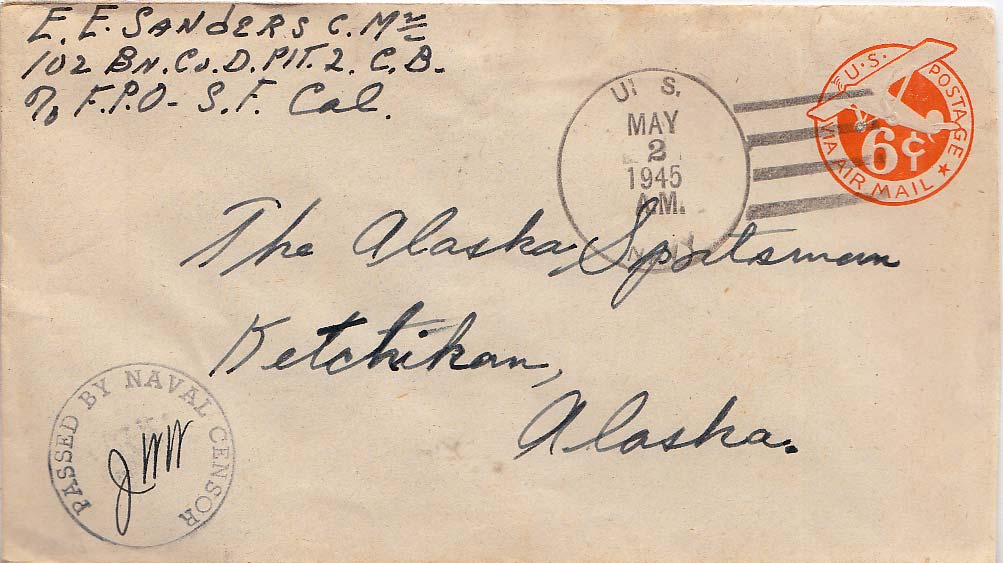 E. E. SANDERS C. M
102 BN. Co. D. PlT. 2. C. B.
% F.P.O - S. F. Cal.
U. S.
MAY
2
1945
A.M.
U.S. POSTAGE
6¢
VIA AIR MAIL
The Alaska Sportsman
Ketchikan,
Alaska.
PASSED BY NAVAL CENSOR
JWW